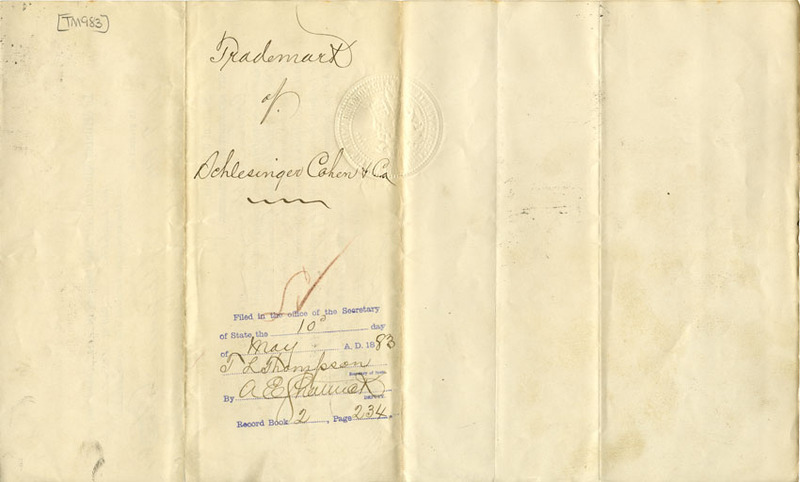 [TM983]
Trademark
of
Schlesinger Cohen & Co
Filed in the office of the Secretary
of State the 10 day
of May A. D. 1883
T L Thompson
Secretary of State
By A E
DEPUTY.
Record Book 2, Page 234.